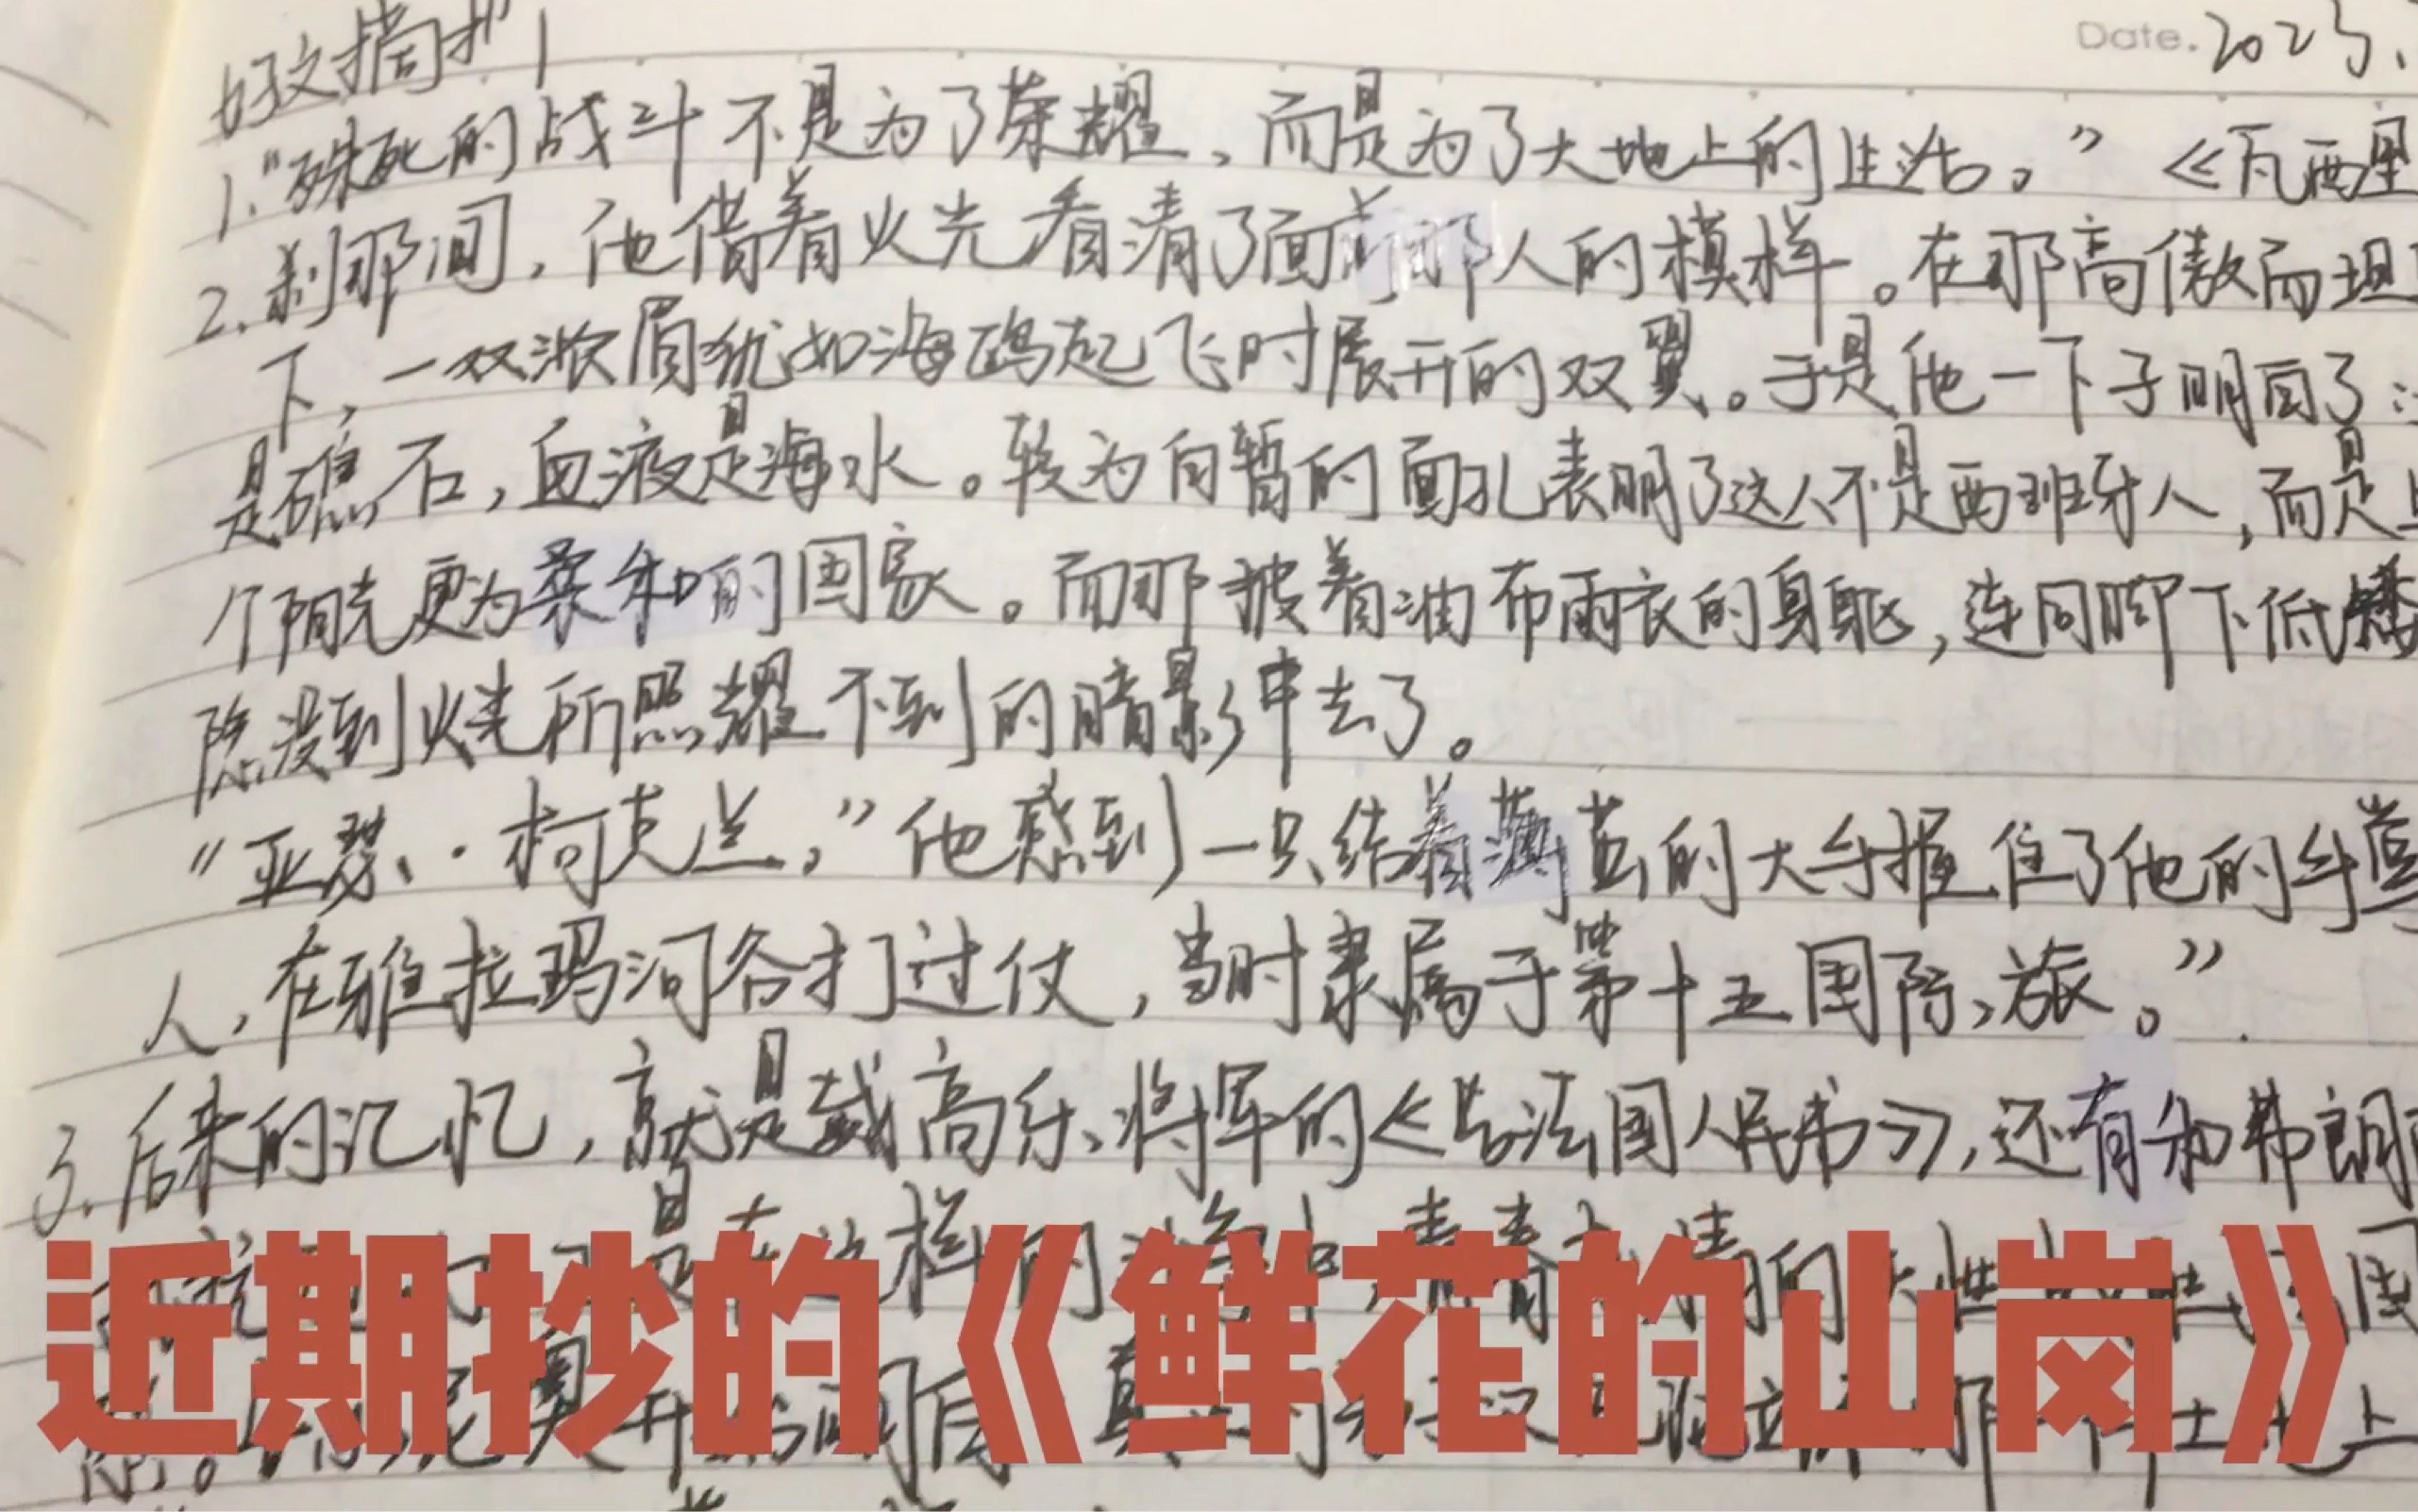 好文摘抄 1
Date. 2023.
1.“殊死的战斗不是为了荣耀，而是为了大地上的生活。”《瓦西里
2.刹那间，他借着火光看清了面前那人的模样。在那高傲而坦
下，一双浓眉犹如海鸥起飞时展开的双翼。于是他一下子明白了：
是礁石，血液是海水。较为白皙的面孔表明了这人不是西班牙人，而是
个阳光更为柔和的国家。而那披着油布雨衣的身躯，连同脚下低矮
隐没到火光所照耀不到的暗影中去了。
“亚瑟·柯克兰，”他感到一只结着薄茧的大手握住了他的手掌
人，在雅拉玛河谷打过仗，当时隶属于第十五国际旅。”
3.后来的记忆，就是戴高乐将军的《告法国人民书》，还有和弗朗
是在这样的
近期抄的《鲜花的山岗》